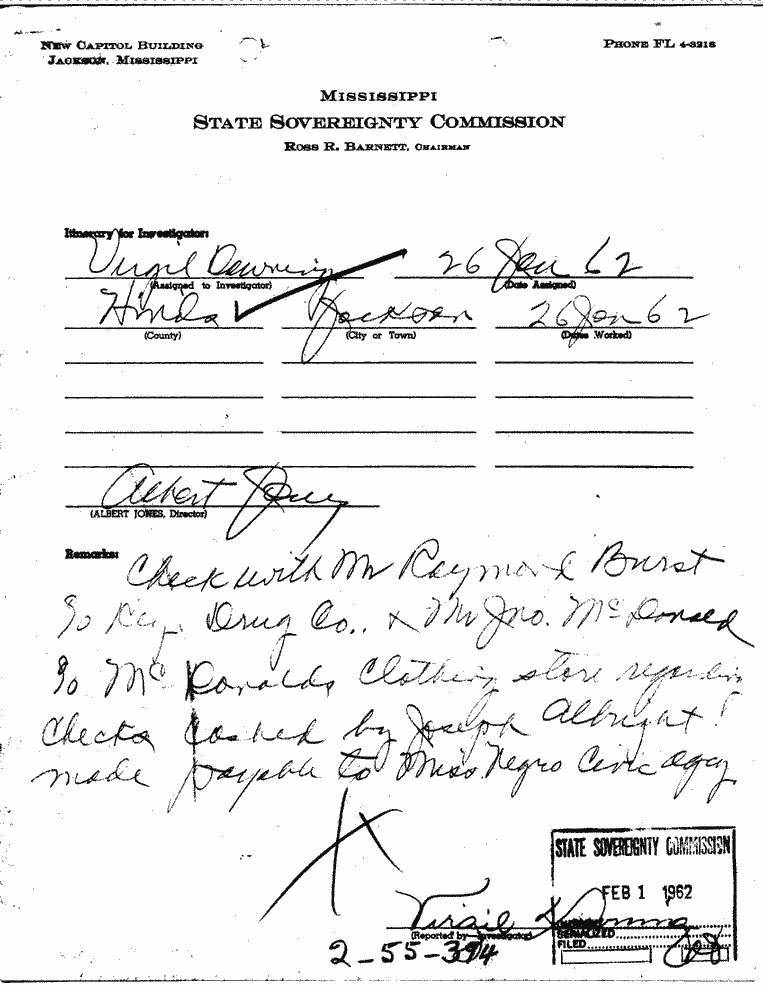 NEW CAPITOL BUILDING
JACKSON, MISSISSIPPI
PHONE FL 4-3218
MISSISSIPPI
STATE SOVEREIGNTY COMMISSION
ROSS R. BARNETT, CHAIRMAN
Itinerary for Investigator:
Virgil Downing 26 Jan 62
(Assigned to Investigator) (Date Assigned)
Hinds Jackson 26 Jan 62
(County) (City or Town) (Dates Worked)
Albert Jones
(ALBERT JONES, Director)
Remarks:
Check with Mr Raymond Burst
Drug Co., & Mr Jno. McDonald
McDonalds Clothing store regarding
Checks Cashed by Joseph Albright!
made payable to Miss. Negro Civic
STATE SOVEREIGNTY COMMISSION
FEB 1 1962
Virgil Downing
(Reported by—Investigator)
SERIALIZED
FILED
2-55-394